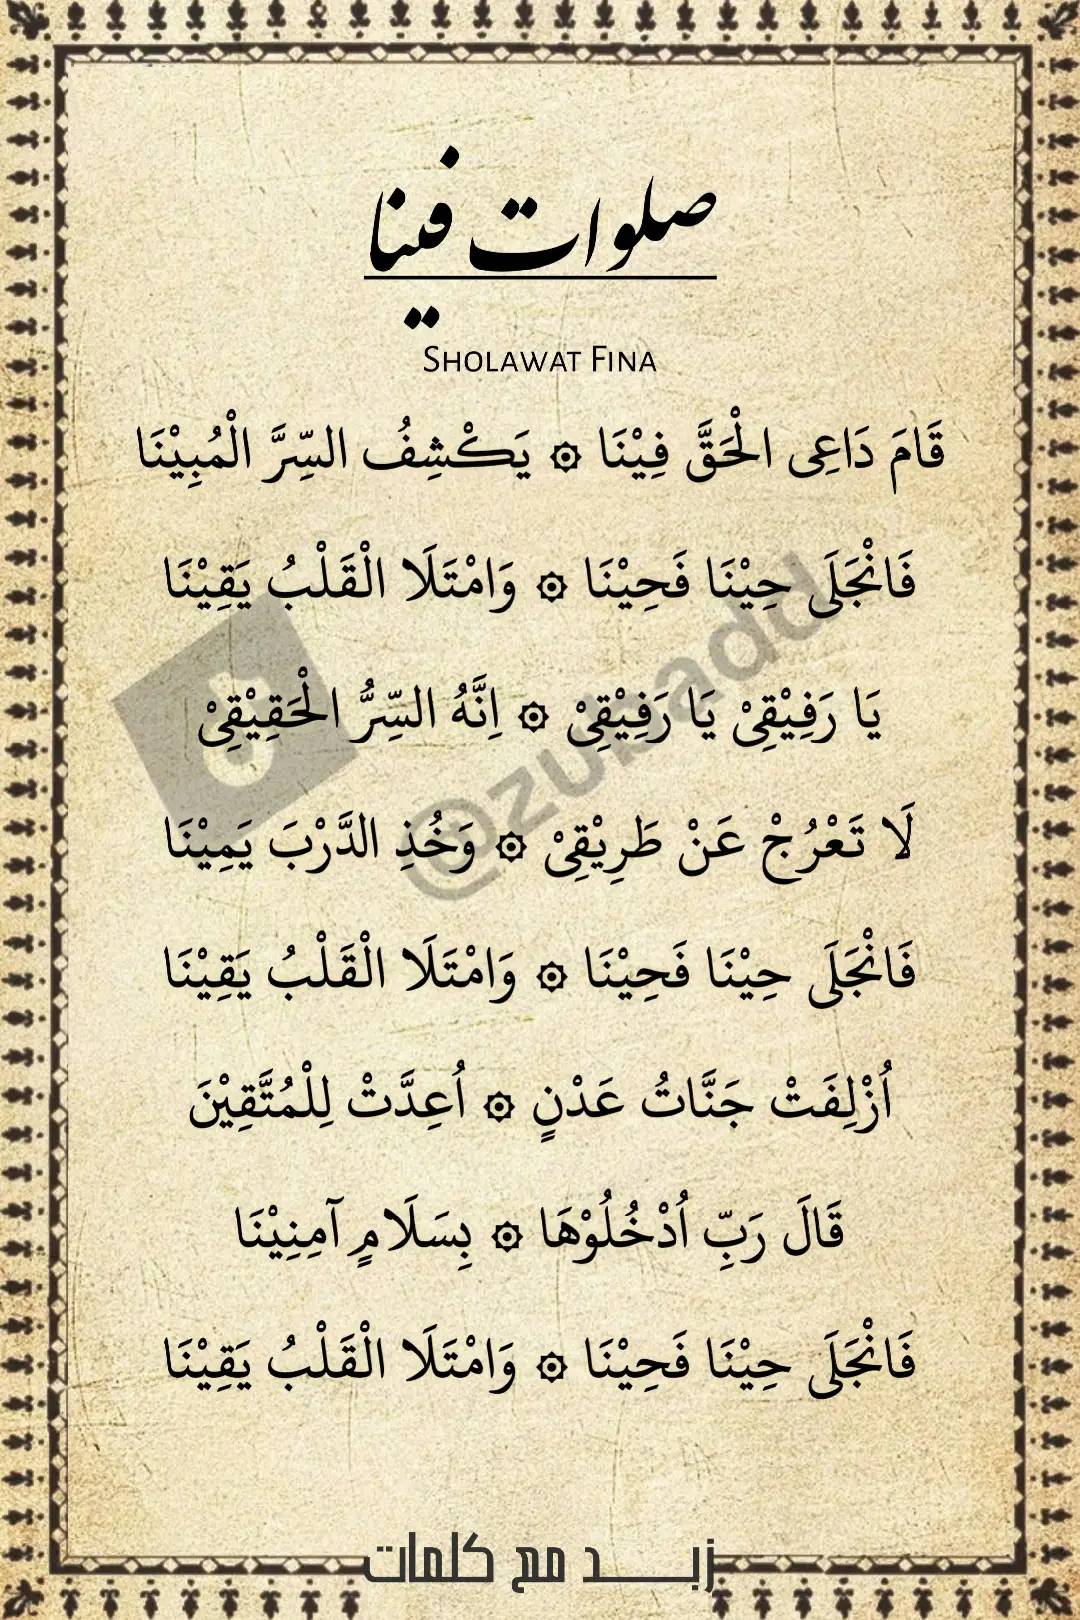 صلوات فينا
SHOLAWAT FINA
قَامَ دَاعِى الْحَقَّ فِيْنَا ۞ يَكْشِفُ السِّرَّ الْمُبِيْنَا
فَانْجَلَى حِيْنَا فَحِيْنَا ۞ وَامْتَلَا الْقَلْبُ يَقِيْنَا
يَا رَفِيْقِىْ يَا رَفِيْقِىْ ۞ اِنَّهُ السِّرُّ الْحَقِيْقِىْ
لَا تَعْرُجْ عَنْ طَرِيْقِىْ ۞ وَخُذِ الدَّرْبَ يَمِيْنَا
فَانْجَلَى حِيْنَا فَحِيْنَا ۞ وَامْتَلَا الْقَلْبُ يَقِيْنَا
اُزْلِفَتْ جَنَّاتُ عَدْنٍ ۞ اُعِدَّتْ لِلْمُتَّقِيْنَ
قَالَ رَبِّ اُدْخُلُوْهَا ۞ بِسَلَامٍ آمِنِيْنَا
فَانْجَلَى حِيْنَا فَحِيْنَا ۞ وَامْتَلَا الْقَلْبُ يَقِيْنَا
زبــد مع كلمات